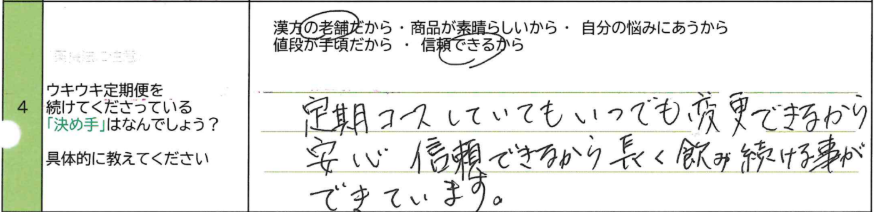 漢方の老舗だから・商品が素晴らしいから・ 自分の悩みにあうから
値段が手頃だから ・ 信頼できるから
4
ウキウキ定期便を
続けてくださっている
「決め手」はなんでしょう?
具体的に教えてください
定期コースしていてもいつでも変更できるから
安心 信頼できるから長く飲み続ける事が
できています。